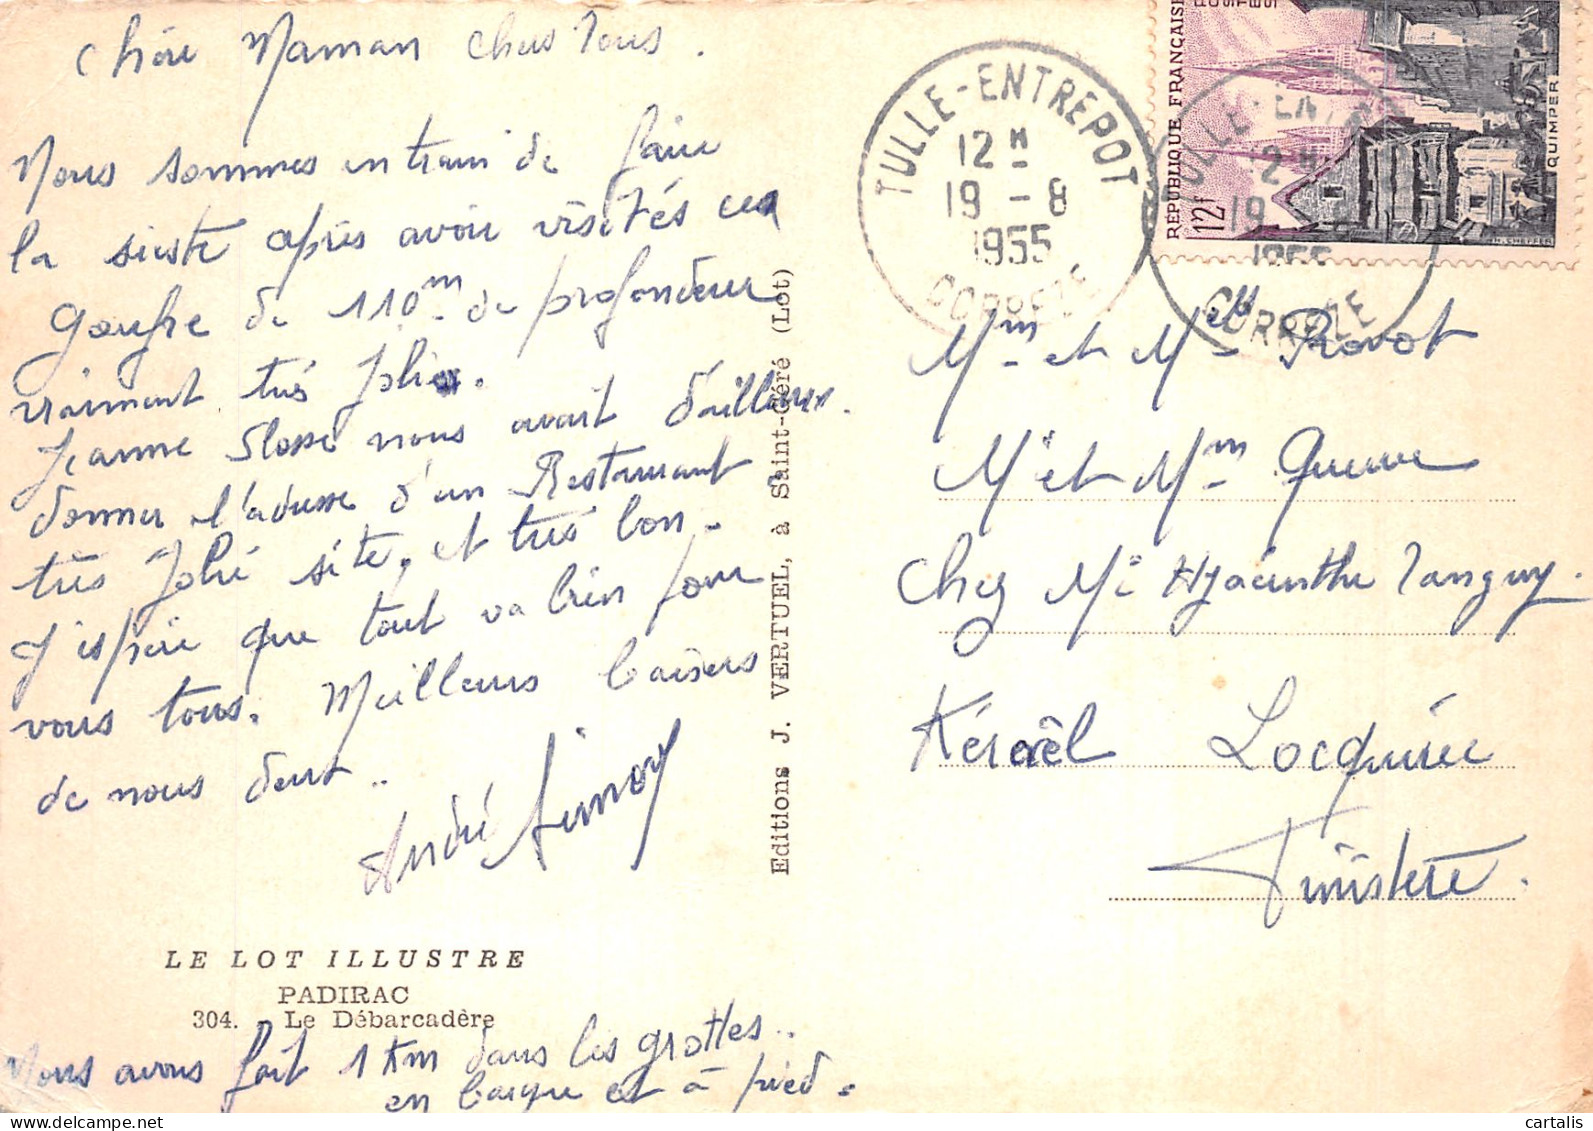 Chère Maman Chers Tous.
Nous sommes en train de faire
la sieste après avoir visités ces
Goufre de 110m de profondeur
vraiment très jolies.
Jeanne Slosse nous avait d'ailleurs
donner l'adresse d'un Restaurant
très Jolie site, et très bon.
J'espère que tout va bien pour
vous tous. Meilleurs baisers
de nous deux..
André
LE LOT ILLUSTRE
PADIRAC
304. - Le Débarcadère
Nous avons fait 1 Km dans les grottes..
en barque et à pied.
Editions J. VERTUEL, à Saint-Céré (Lot)
TULLE-ENTREPOT
12 H
19 - 8
1955
CORREZE
TULLE-ENTREPOT
12 H
19 - 8
1955
CORREZE
REPUBLIQUE FRANÇAISE
POSTES
12F
QUIMPER
H. CHEFFER
Mme et Mlle Provot
Mr et Mme Queuve
Chez Mr Hyacinthe Tanguy.
Kéraël Locquirée
Finistère.
cartalis